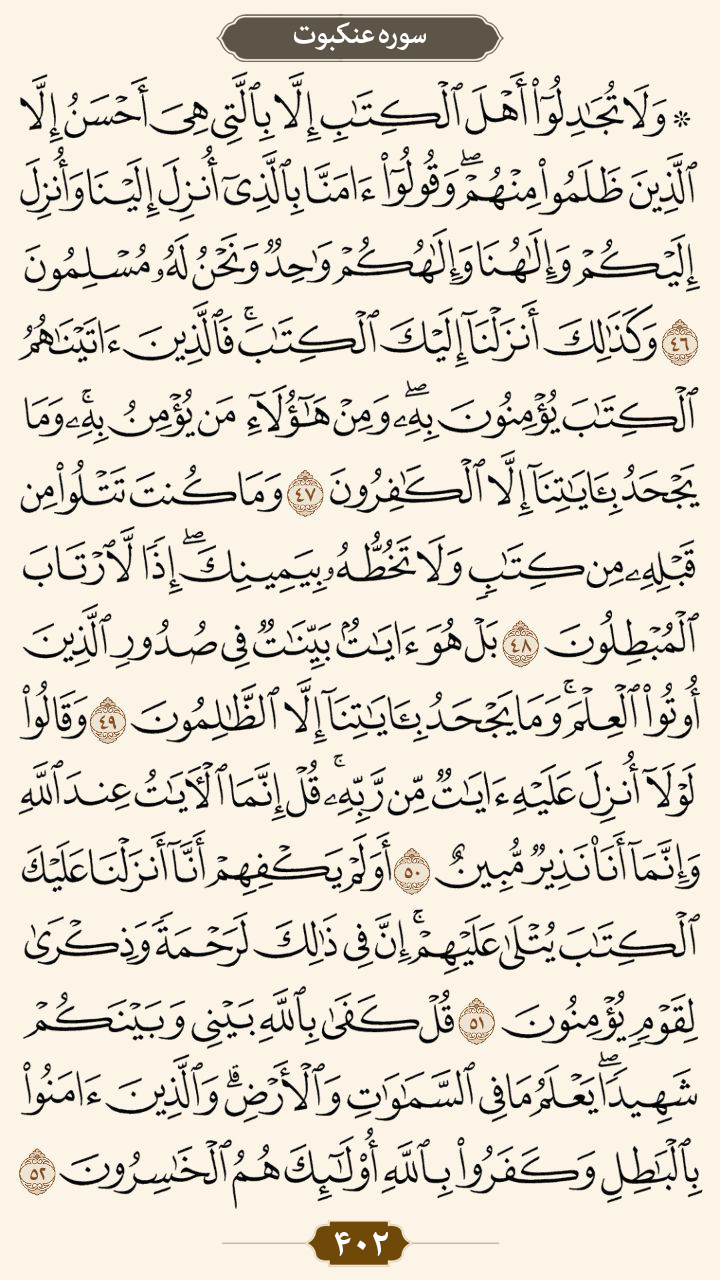 سوره عنکبوت
۞ وَلَا تُجَٰدِلُوٓا۟ أَهْلَ ٱلْكِتَٰبِ إِلَّا بِٱلَّتِى هِىَ أَحْسَنُ إِلَّا
ٱلَّذِينَ ظَلَمُوا۟ مِنْهُمْۖ وَقُولُوٓا۟ ءَامَنَّا بِٱلَّذِىٓ أُنزِلَ إِلَيْنَا وَأُنزِلَ
إِلَيْكُمْ وَإِلَٰهُنَا وَإِلَٰهُكُمْ وَٰحِدٌ وَنَحْنُ لَهُۥ مُسْلِمُونَ
٤٦ وَكَذَٰلِكَ أَنزَلْنَآ إِلَيْكَ ٱلْكِتَٰبَۚ فَٱلَّذِينَ ءَاتَيْنَٰهُمُ
ٱلْكِتَٰبَ يُؤْمِنُونَ بِهِۦۖ وَمِنْ هَٰٓؤُلَآءِ مَن يُؤْمِنُ بِهِۦۚ وَمَا
يَجْحَدُ بِـَٔايَٰتِنَآ إِلَّا ٱلْكَٰفِرُونَ ٤٧ وَمَا كُنتَ تَتْلُوا۟ مِن
قَبْلِهِۦ مِن كِتَٰبٍ وَلَا تَخُطُّهُۥ بِيَمِينِكَۖ إِذًا لَّٱرْتَابَ
ٱلْمُبْطِلُونَ ٤٨ بَلْ هُوَ ءَايَٰتٌۢ بَيِّنَٰتٌ فِى صُدُورِ ٱلَّذِينَ
أُوتُوا۟ ٱلْعِلْمَۚ وَمَا يَجْحَدُ بِـَٔايَٰتِنَآ إِلَّا ٱلظَّٰلِمُونَ ٤٩ وَقَالُوا۟
لَوْلَآ أُنزِلَ عَلَيْهِ ءَايَٰتٌ مِّن رَّبِّهِۦۚ قُلْ إِنَّمَا ٱلْءَايَٰتُ عِندَ ٱللَّهِ
وَإِنَّمَآ أَنَا۠ نَذِيرٌ مُّبِينٌ ٥٠ أَوَلَمْ يَكْفِهِمْ أَنَّآ أَنزَلْنَا عَلَيْكَ
ٱلْكِتَٰبَ يُتْلَىٰ عَلَيْهِمْۚ إِنَّ فِى ذَٰلِكَ لَرَحْمَةً وَذِكْرَىٰ
لِقَوْمٍ يُؤْمِنُونَ ٥١ قُلْ كَفَىٰ بِٱللَّهِ بَيْنِى وَبَيْنَكُمْ
شَهِيدًاۖ يَعْلَمُ مَا فِى ٱلسَّمَٰوَٰتِ وَٱلْأَرْضِۗ وَٱلَّذِينَ ءَامَنُوا۟
بِٱلْبَٰطِلِ وَكَفَرُوا۟ بِٱللَّهِ أُو۟لَٰٓئِكَ هُمُ ٱلْخَٰسِرُونَ ٥٢
۴۰۲